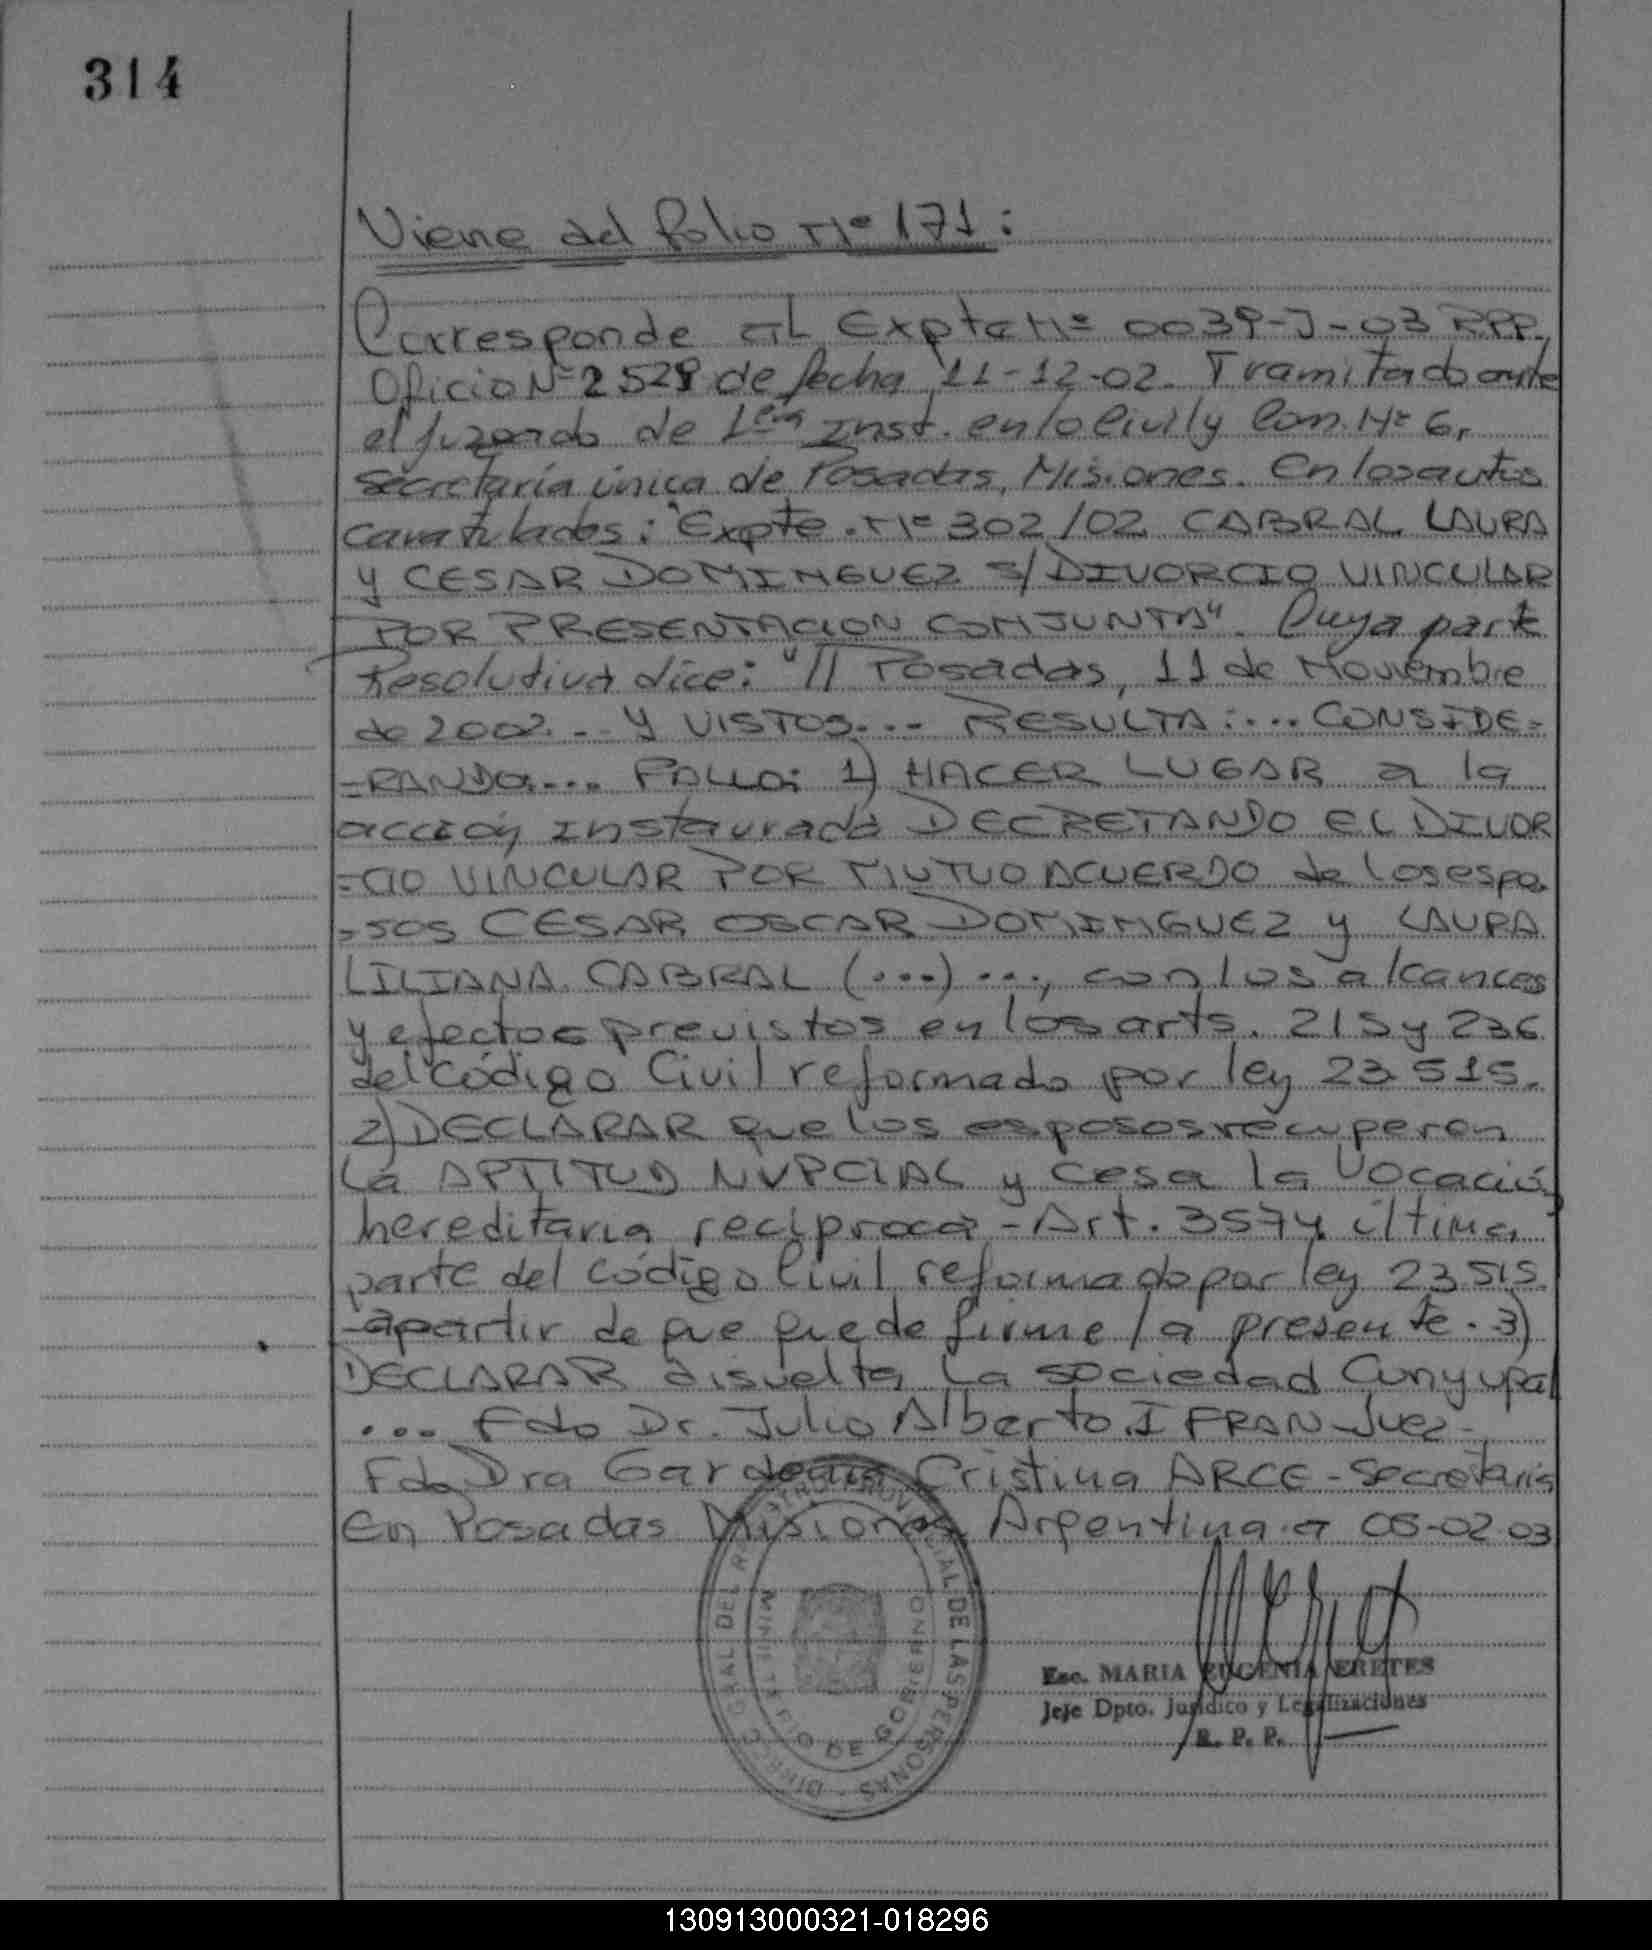 314
Viene del folio Nº 171:
Corresponde al Expte Nº 0039-J-03 R.P.P.
Oficio Nº 2529 de fecha 11-12-02. Tramitado ante
el juzgado de 1era Inst. en lo Civil y Com. Nº 6,
Secretaría única de Posadas, Misiones. En los autos
caratulados: "Expte. Nº 302/02 CABRAL LAURA
y CESAR DOMINGUEZ S/ DIVORCIO VINCULAR
POR PRESENTACION CONJUNTA". Cuya parte
Resolutiva dice: "// Posadas, 11 de Noviembre
de 2002... Y VISTOS... RESULTA:... CONSIDE=
=RANDO:... FALLO: 1) HACER LUGAR a la
acción instaurada DECRETANDO EL DIVOR
=CIO VINCULAR POR MUTUO ACUERDO de los espo
=sos CESAR OSCAR DOMINGUEZ y LAURA
LILIANA CABRAL (...) ..., con los alcances
y efectos previstos en los arts. 215 y 236
del Código Civil reformado por ley 23515.
2) DECLARAR que los esposos recuperan
La APTITUD NUPCIAL y cesa la Vocación
hereditaria recíproca - Art. 3574 última
parte del código Civil reformado por ley 23515.
-apartir de que quede firme la presente. 3)
DECLARAR disuelta La sociedad Conyugal
... Fdo Dr. Julio Alberto IFRAN - Juez -
Fdo Dra Gardenia Cristina ARCE - Secretaria
En Posadas Misiones Argentina a 05-02-03
DIREC. GRAL DEL REGISTRO PROVINCIAL DE LAS PERSONAS
MINISTERIO DE GOBIERNO
Esc. MARIA EUGENIA ERETES
Jefe Dpto. Jurídico y Legalizaciones
R. P. P.
130913000321-018296